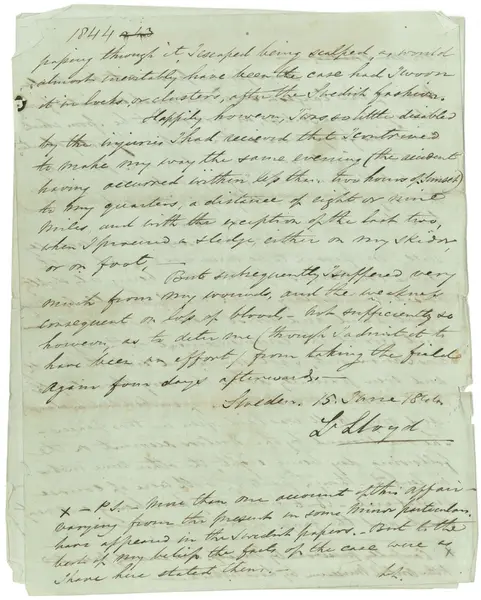 1844
passing through it, I escaped being scalped, as would
almost inevitably have been the case had I worn
it in locks or clusters, after the Swedish fashion.
Happily however, I was so little disabled
by the injuries I had received that I contrived
to make my way the same evening (the accident
having occurred within less than two hours of Sunset)
to my quarters, a distance of eight or nine
miles and with the exception of the last two,
when I procured a sledge, either on my Skidor,
or on foot,
But subsequently I suffered very
much from my wounds, and the weakness
consequent on loss of blood, - not sufficiently so
however, as to deter me (though I admit it to
have been an effort) from taking the field
again four days afterwards. -
Sweden. 15. June 1844.
L Lloyd
x - P.S. - More than one account of this affair -
varying from the present in some minor particulars
have appeared in the Swedish papers. - But to the
best of my belief the facts of the case were as x
I have here stated them. -